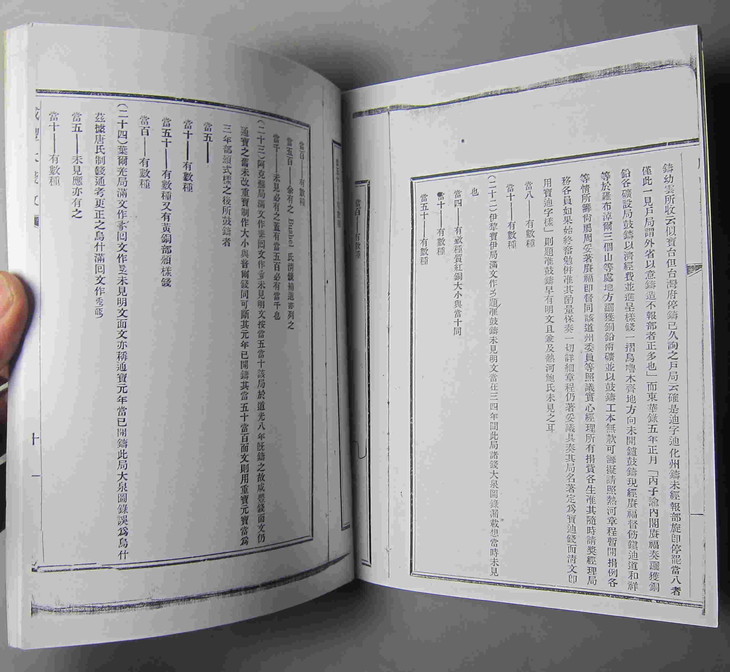 鑄幼雲所收云似寶台但台灣府停鑄已久詢之戶局云確是迪字迪化州鑄未經報部旋卽停罷當八者
僅此一見戶局謂外省以意鑄造不報部者正多也」而東華錄五年正月「丙子諭內閣賡福奏躧獲銅
鉛各礦設局鼓鑄以濟經費並進呈樣錢一摺烏嚕木齊地方向未開鑪鼓鑄現經賡福督飭鎮迪道和祥
等於羅布淖爾三個山等處地方躧獲銅鉛兩礦並以鼓鑄工本無款可籌擬請照熱河章程暫開捐例各
等情所籌尙屬周妥著賡福卽督同該道州委員等照議實心經理所有捐貲各生准其隨時請奬經理局
移各員如果始終奮勉併准其酌量保奏一切詳細章程仍著妥議具奏其局名著定爲寶迪錢而清文卽
用寶迪字樣」則題准鼓鑄早有明文且兪及熱河鮑氏未見之耳
當八——有數種
當十——有數種
(二十二)伊犂寶伊局滿文作 題准鼓鑄未見明文當在三四年間此局諸錢大泉圖錄菑載想當時未見
也
當四——有貳種質紅銅大小與當十同
當十——有數種
當五十——有數種
當百——有數種
當百——有數種
當五百——余有之 Bushel 氏情錢補遺着列之
當千——未見必有之蓋有當五百必有當千也
(二十三)阿克蘇局滿文作 回文作 未見明文按當五當十該局於道光八年旣鑄之故咸豐錢面文仍
通寶之當未改重寶制作大小與普爾錢同可斷其元年已開鑄其當五十當百面文則用重寶元寶當爲
三年部頒式樣之後所鼓鑄者
當五——
當十——有數種
當五十——有數種又有黃銅部頒樣錢
當百——有數種
(二十四)葉爾羌局滿文作 回文作 未見明文面文亦稱通寶元年當已開鑄此局大泉圖錄誤爲烏什
茲據唐氏制錢通考更正之烏什滿回文作
當五——未見應亦有之
當十——有數種
十一